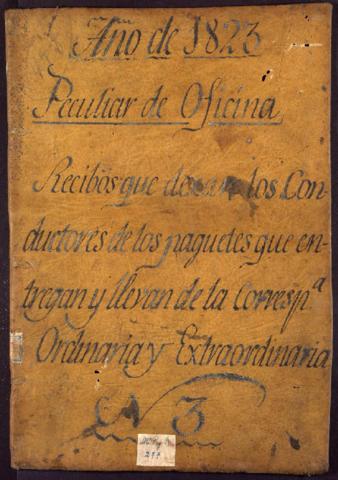 Año de 1823
Peculiar de Oficina
Recibos que los Con-
ductores de los paquetes que en-
tregan y llevan de la Corresp.ª
Ordinaria y Extraordinaria
N 3